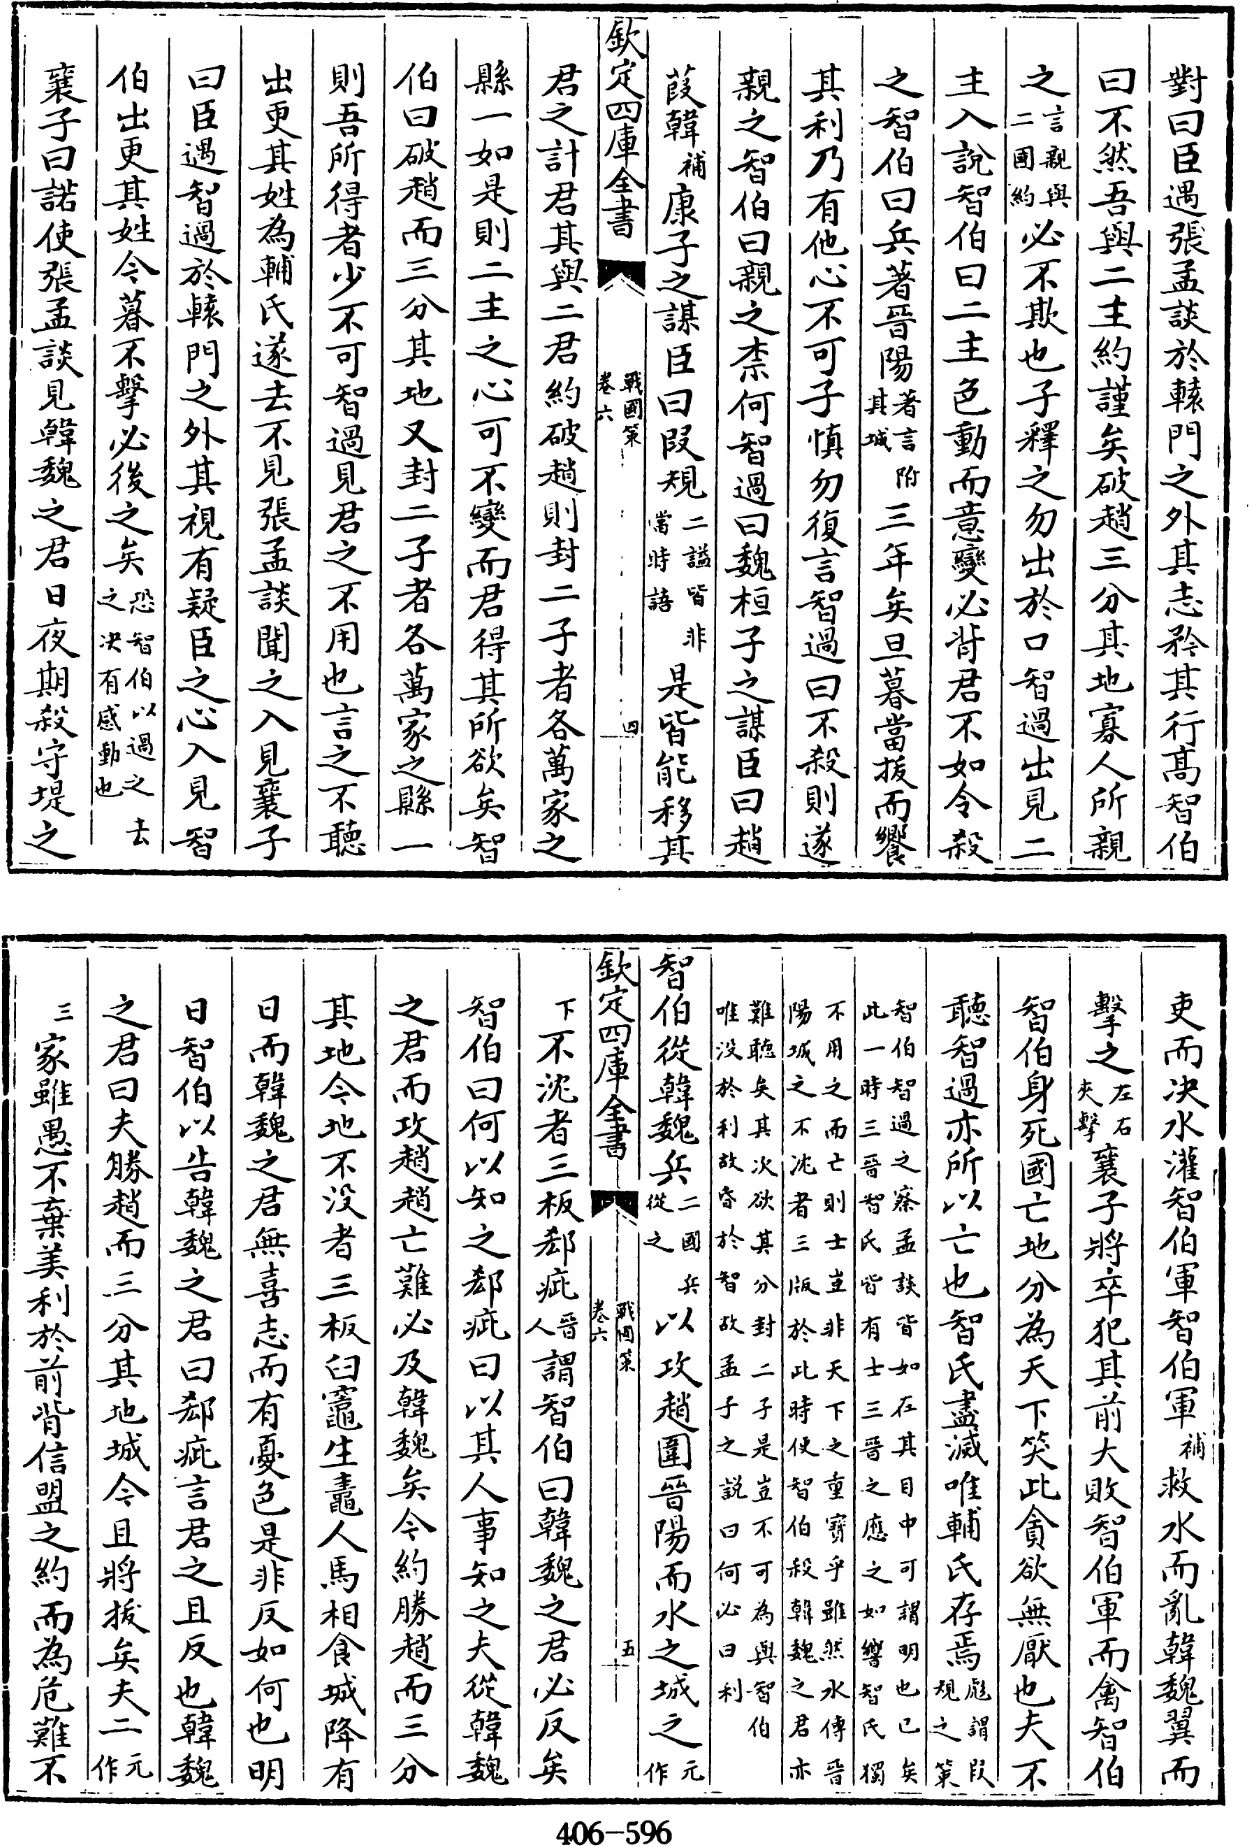 對曰臣遇張孟談於轅門之外其志矜其行高智伯
曰不然吾與二主約謹矣破趙三分其地寡人所親
之言親與二國約必不欺也子釋之勿出於口智過出見二
主入說智伯曰二主色動而意變必背君不如令殺
之智伯曰兵著晉陽著言附其城三年矣旦暮當拔而饗
其利乃有他心不可子慎勿復言智過曰不殺則遂
親之智伯曰親之柰何智過曰魏桓子之謀臣曰趙
葭韓補康子之謀臣曰段規二謚皆非當時語是皆能移其
欽定四庫全書
戰國策
卷六
四
君之計君其與二君約破趙則封二子者各萬家之
縣一如是則二主之心可不變而君得其所欲矣智
伯曰破趙而三分其地又封二子者各萬家之縣一
則吾所得者少不可智過見君之不用也言之不聽
出更其姓為輔氏遂去不見張孟談聞之入見襄子
曰臣遇智過於轅門之外其視有疑臣之心入見智
伯出更其姓今暮不擊必後之矣恐智伯以過之去之决有感動也
襄子曰諾使張孟談見韓魏之君日夜期殺守堤之
吏而决水灌智伯軍智伯軍補救水而亂韓魏翼而
擊之左右夾擊襄子將卒犯其前大敗智伯軍而禽智伯
智伯身死國亡地分為天下笑此貪欲無厭也夫不
聽智過亦所以亡也智氏盡滅唯輔氏存焉彪謂段規之策
智伯智過之察孟談皆如在其目中可謂明也已矣
此一時三晉智氏皆有士三晉之應之如響智氏獨
不用之而亡則士豈非天下之重寶乎雖然水傳晉
陽城之不沈者三版於此時使智伯殺韓魏之君亦
難聽矣其次欲其分封二子是豈不可為與智伯
唯没於利故昏於智故孟子之説曰何必曰利
智伯從韓魏兵二國兵從之以攻趙圍晉陽而水之城之元作
欽定四庫全書
戰國策
卷六
五
下不沈者三板郄疵晉人謂智伯曰韓魏之君必反矣
智伯曰何以知之郄疵曰以其人事知之夫從韓魏
之君而攻趙趙亡難必及韓魏矣今約勝趙而三分
其地今地不没者三板臼竈生鼃人馬相食城降有
日而韓魏之君無喜志而有憂色是非反如何也明
日智伯以告韓魏之君曰郄疵言君之且反也韓魏
之君曰夫勝趙而三分其地城今且將拔矣夫二元作
三家雖愚不棄美利於前背信盟之約而為危難不
406-596